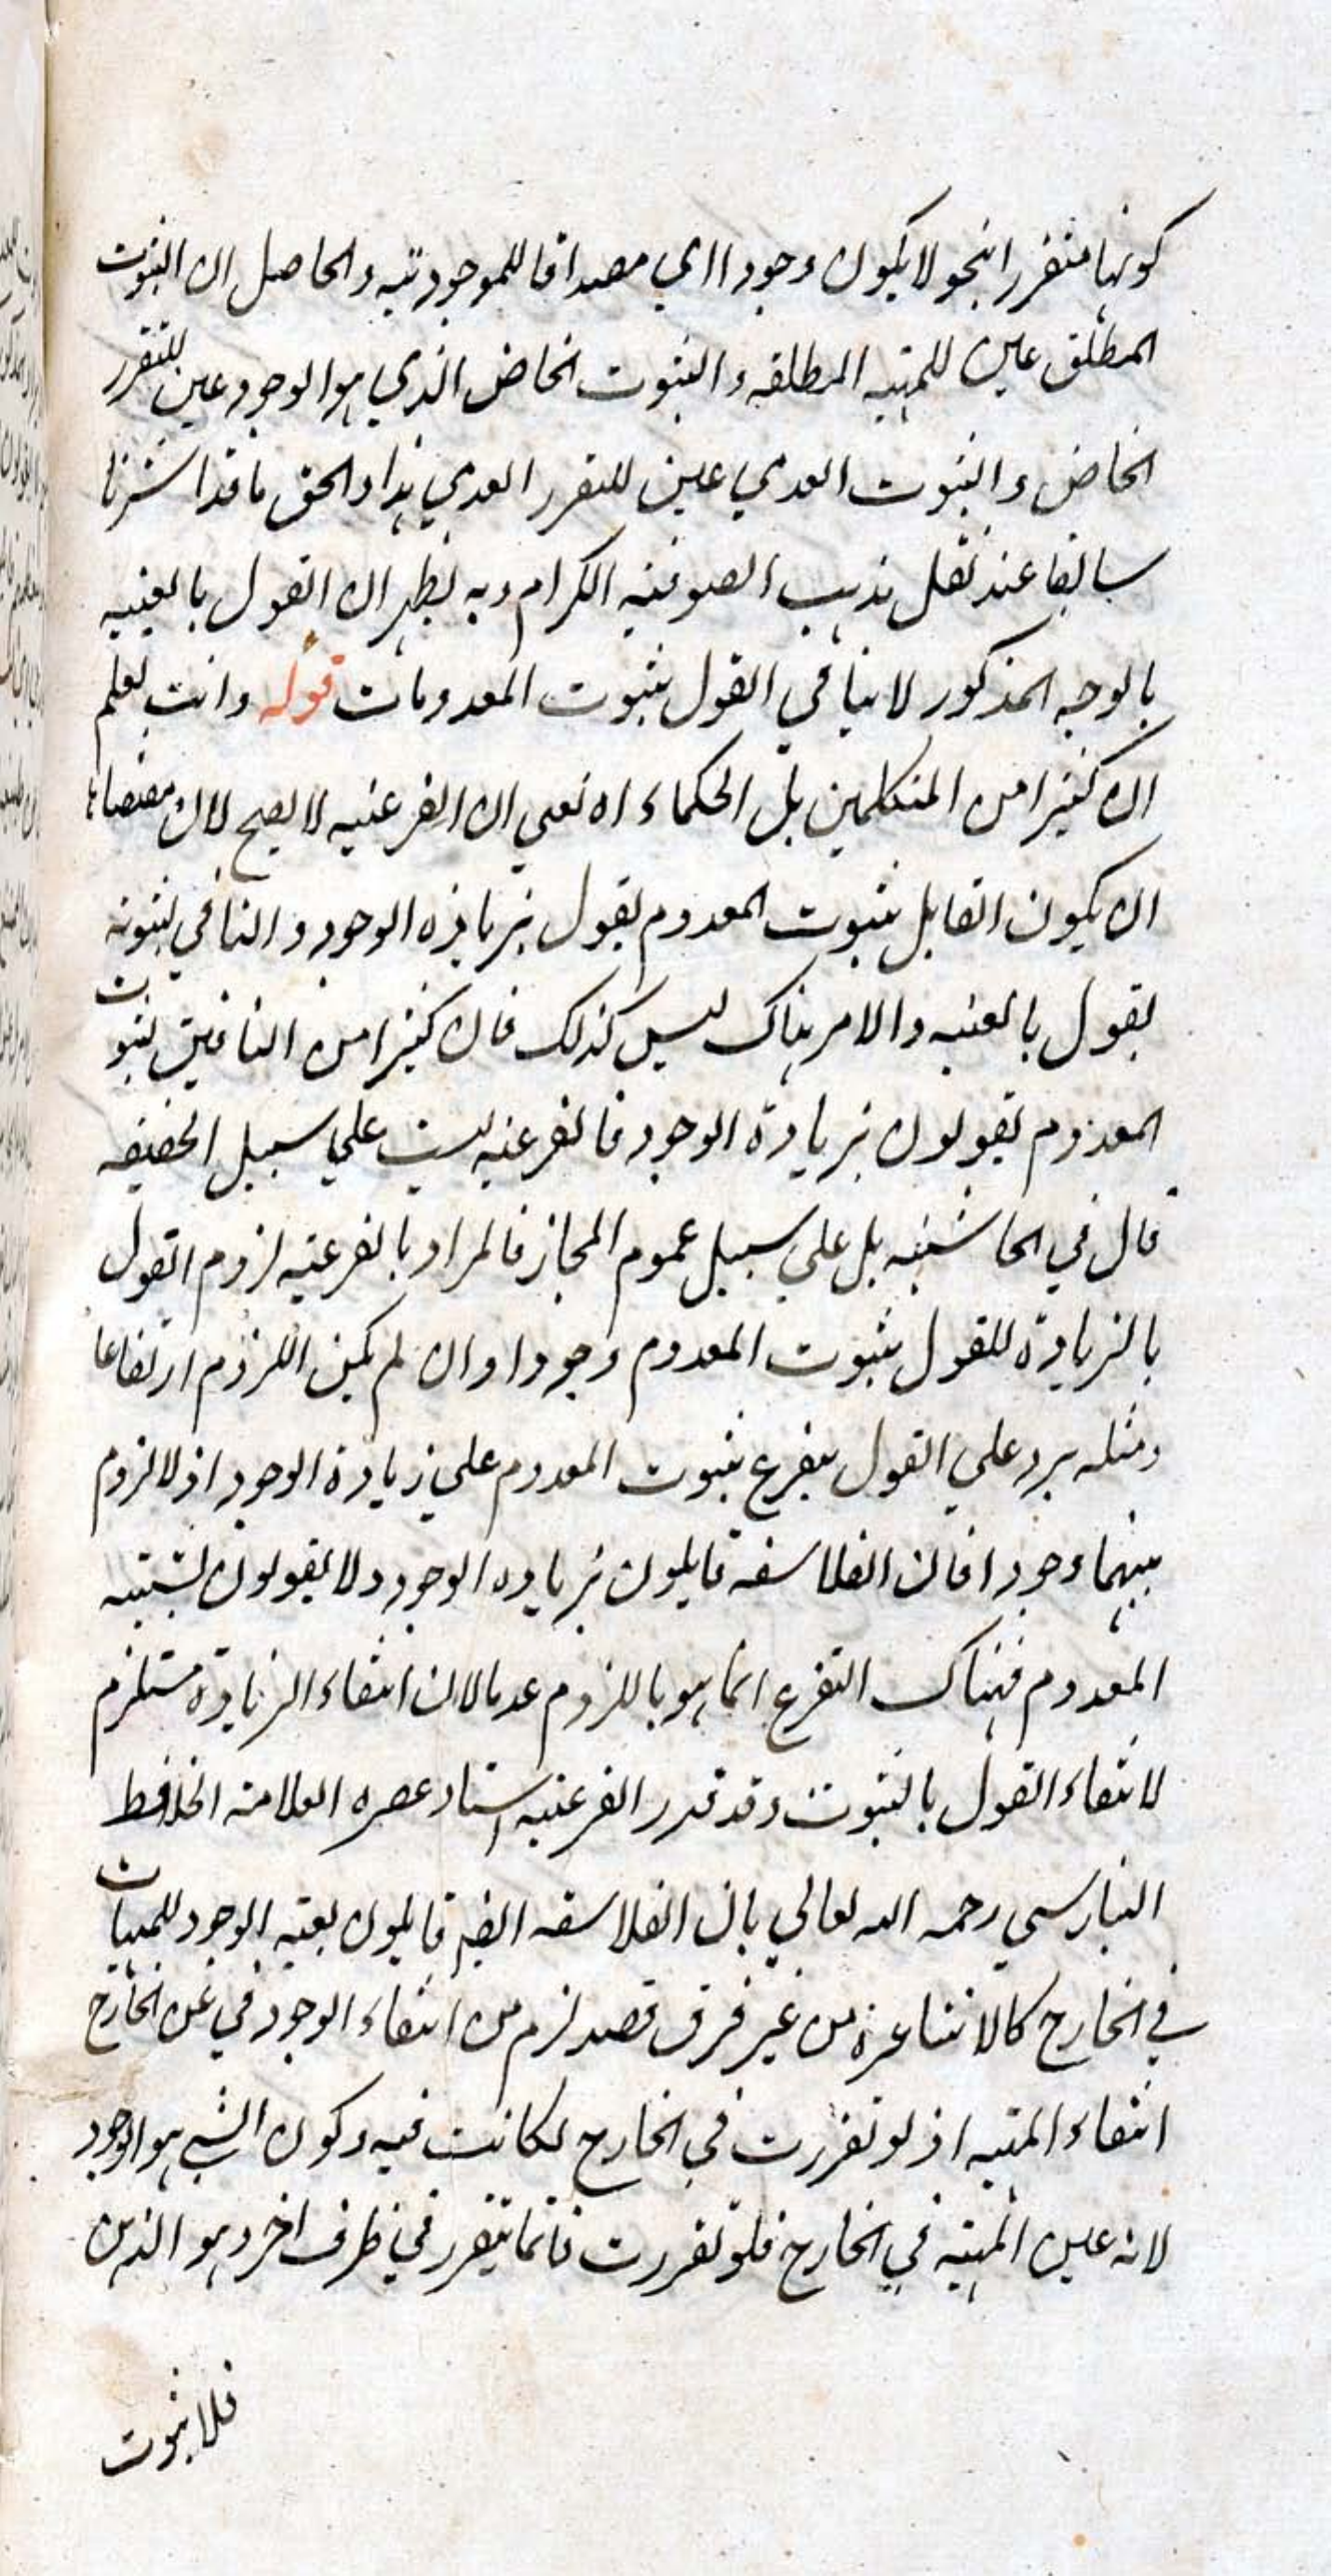 كونها متقررا بنحو لا يكون وجودا اي مصداقا للموجودية والحاصل ان الثبوت
المطلق عين للمهية المطلقة والثبوت الخاص الذي هو الوجود عين للتقرر
الخاص والثبوت العدمي عين للتقرر العدمي هذا والحق ما قد اشرنا
سابقا عند نقل مذهب الصوفية الكرام وبه يظهر ان القول بالعينية
بالوجه المذكور لا ينافي القول بثبوت المعدومات قوله وانت تعلم
ان كثيرا من المتكلمين بل الحكماء اه يعني ان الفرعية لا يصح لان مقتضاها
ان يكون القايل بثبوت المعدوم يقول بزيادة الوجود والنافي لثبوته
يقول بالعينية والامر هناك ليس كذلك فان كثيرا من النافين لثبوت
المعدوم يقولون بزيادة الوجود فالفرعية ليست علي سبيل الحقيقة
قال في الحاشية بل علي سبيل عموم المجاز فالمراد بالفرعية لزوم القول
بالزيادة للقول بثبوت المعدوم وجودا وان لم يكن اللزوم ارتفاعا
ومثله يرد علي القول بتفرع ثبوت المعدوم علي زيادة الوجود اذ لا لزوم
بينهما وجودا فان الفلاسفة قايلون بزيادة الوجود ولا يقولون بشيئية
المعدوم فهناك التفرع انما هو باللزوم عدما لان انتفاء الزيادة مستلزم
لانتفاء القول بالثبوت وقد قرر الفرعية استاد عصره العلامة الحافظ
البنارسي رحمه الله تعالي بان الفلاسفة ايضا قايلون بعينية الوجود للمهيات
في الخارج كالاشاعرة من غير فرق فقد لزم من انتفاء الوجود في عن الخارج
انتفاء المهية اذ لو تقررت في الخارج لكانت فيه وكون الشي هو الوجود
لانه عين المهية في الخارج فلو تقررت فانما يتقرر في ظرف اخر وهو الذهن
فلا ثبوت